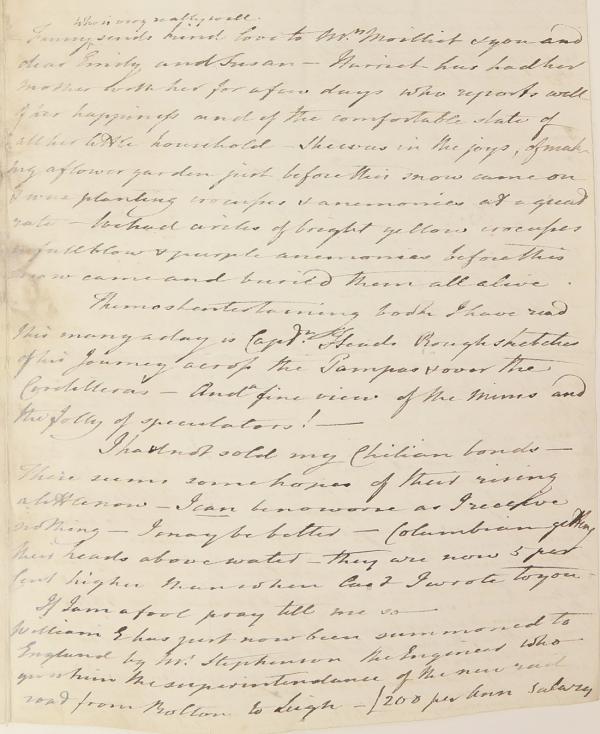 who is very really well.
- Fanny sends kind love to Mrs Moilliet & you and
dear Emily and Susan - Harriet has had her
mother with her for a few days who reports well
of her happiness and of the comfortable state of
all her little household - She was in the joys, of mak-
ing a flower garden just before this snow came on
& was planting crocuses & anemonies at a great
rate - We had circles of bright yellow crocuses
in full blow & purple anemonies before this
snow came and buried them all alive.
The most entertaining book I have read
this many a day is Captn. Heads Rough sketches
of his Journey across the Pampas & over the
Cordilleras - And a fine view of the Mines and
the folly of speculators! -
I had not sold my Chilian bonds -
There seems some hopes of their rising
a little now - I can be no worse as I receive
nothing - I may be better - Columbian getting
their heads above water - they are now 5 per
Cent higher than when last I wrote to you -
If I am a fool pray tell me so -
William E has just now been summoned to
England by Mr. Stephenson the Engineer who
gives him the superintendance of the new rail
road from Bolton to Leigh - £200 per ann salary